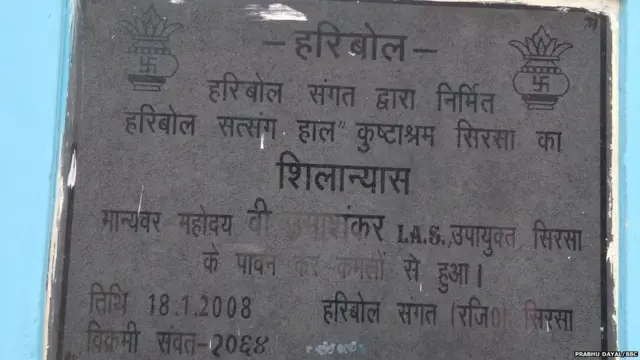 – हरिबोल –
हरिबोल संगत द्वारा निर्मित
हरिबोल सत्संग हाल" कुष्टाश्रम सिरसा का
शिलान्यास
मान्यवर महोदय वी उमाशंकर I.A.S.,उपायुक्त, सिरसा
के पावन कर कमलों से हुआ।
तिथि 18.1.2008 हरिबोल संगत (रजि०) सिरसा
विक्रमी संवत-२०६४
PRABHU DAYAL/BBC